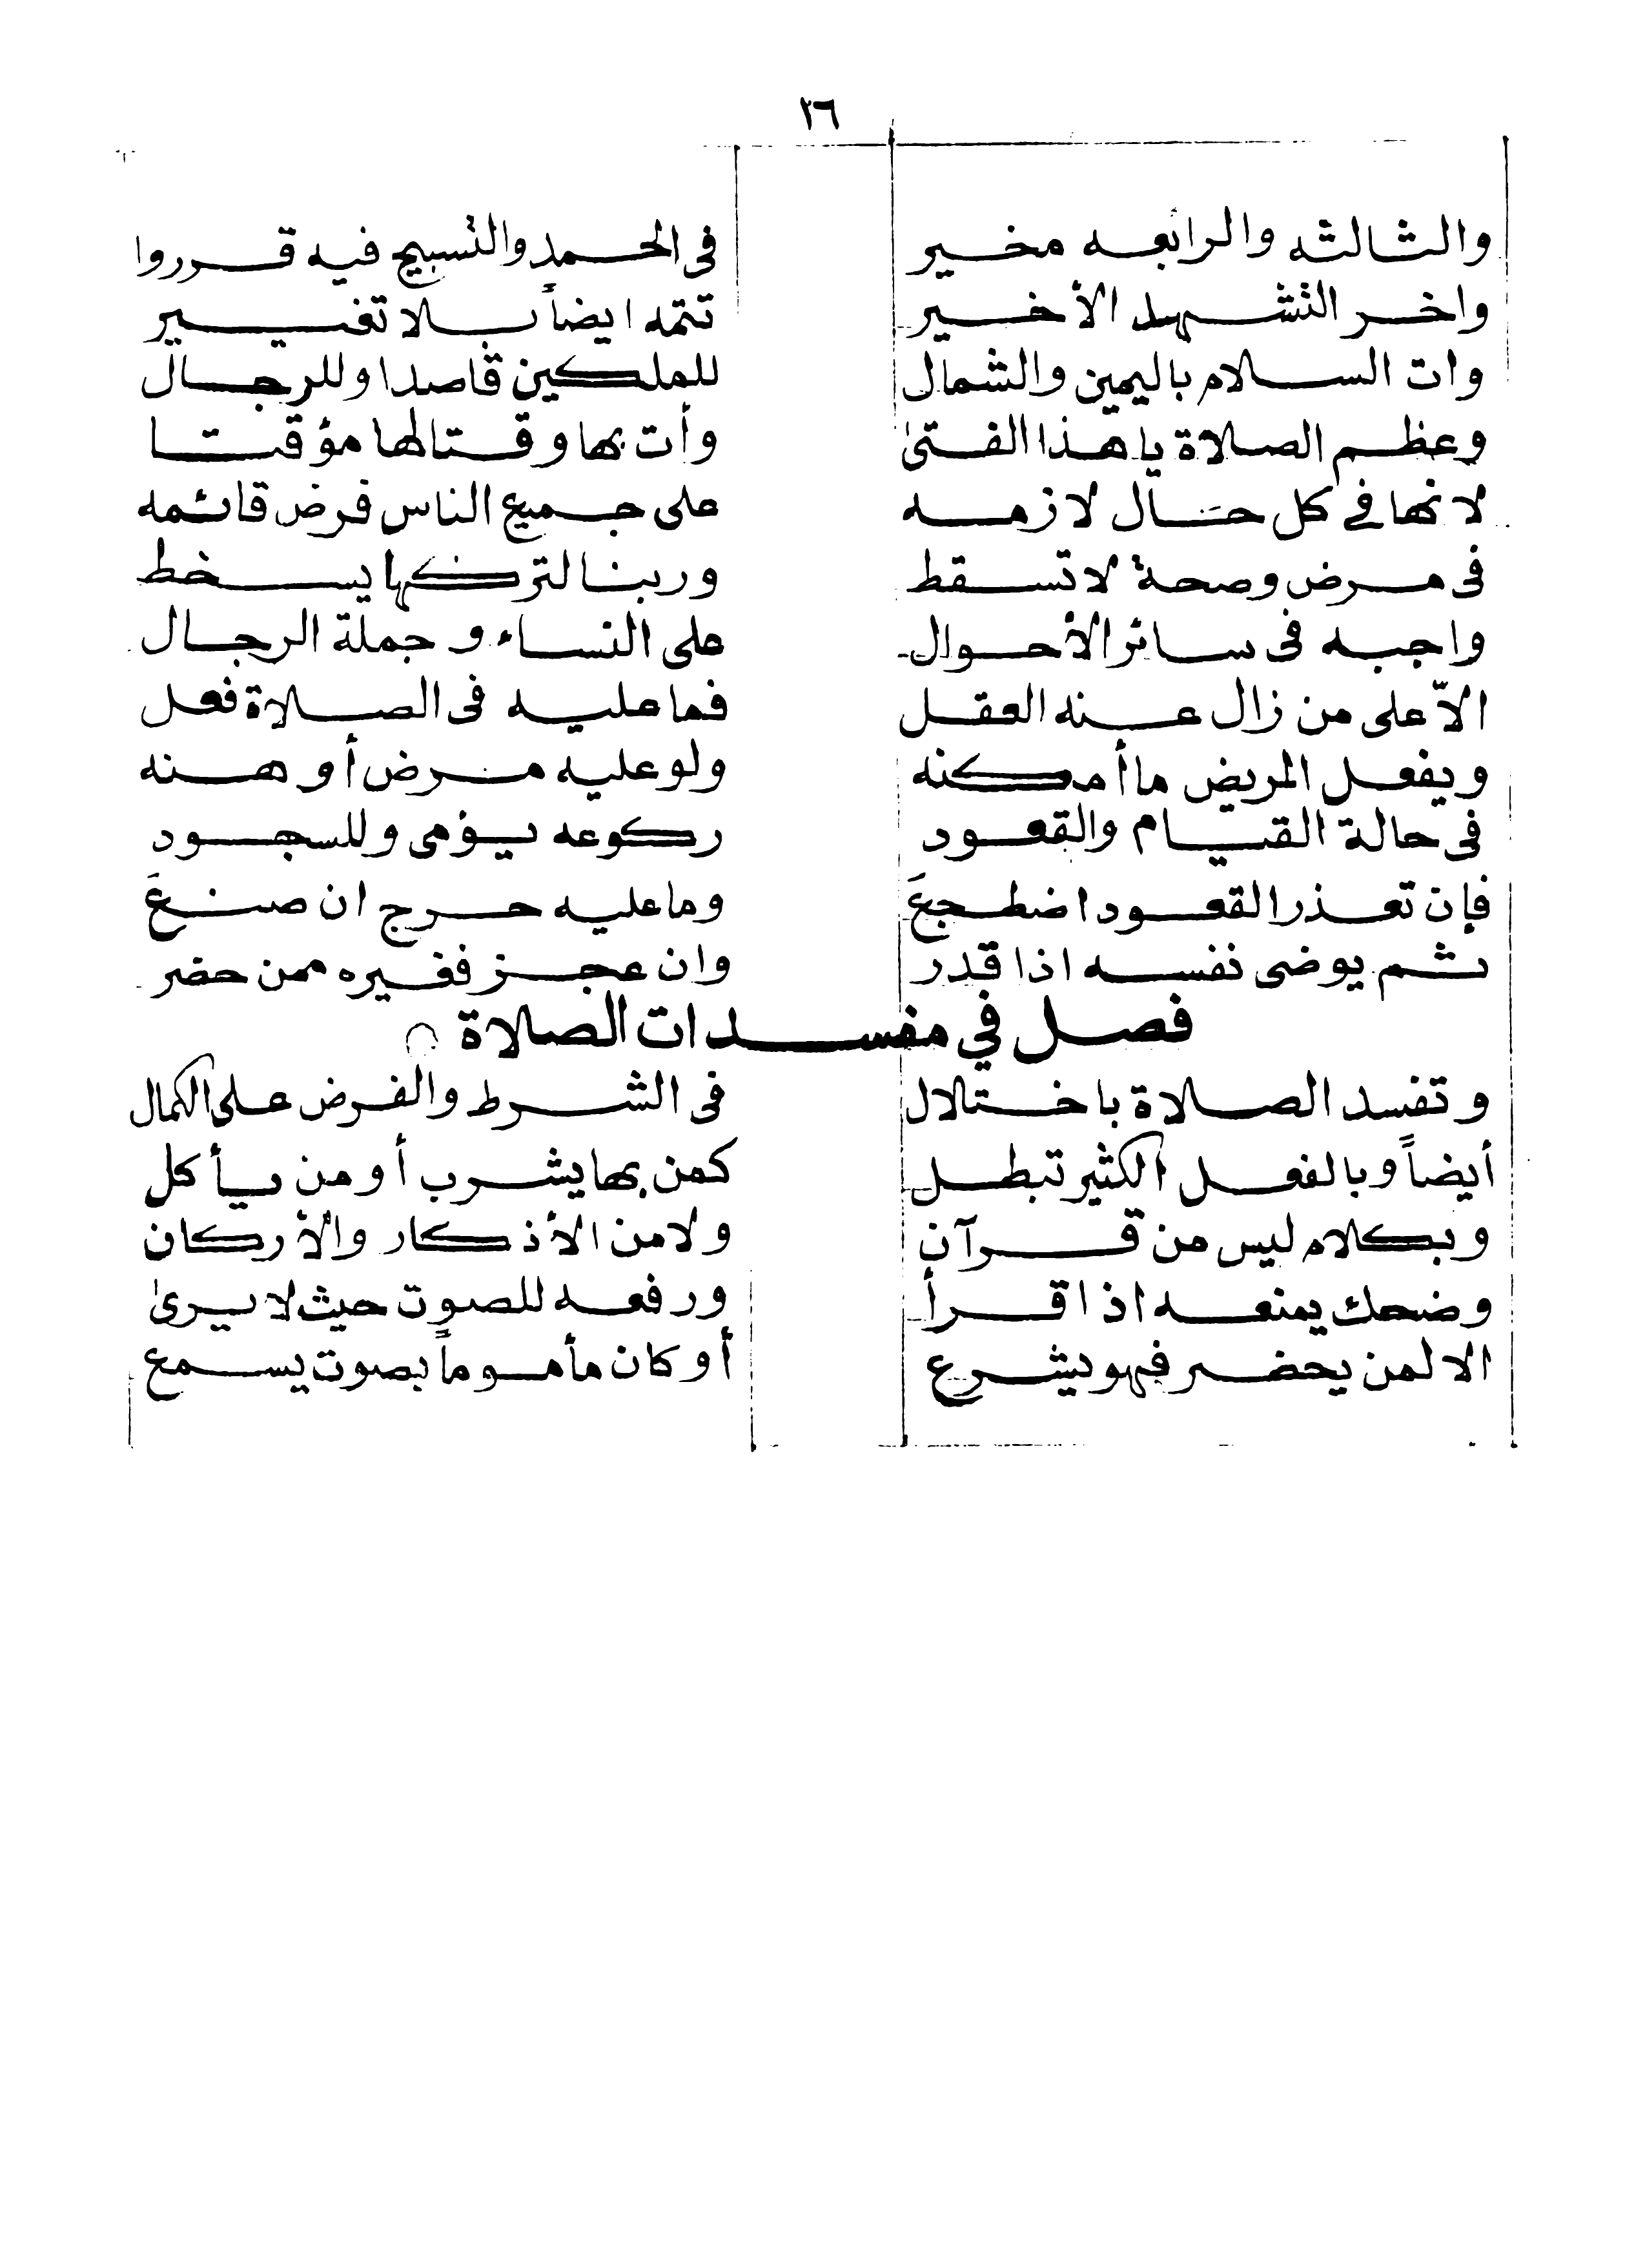 ٢٦
والثالثه والرابعه مخير في الحمد والتسبيح فيه قرروا
واخر التشهد الأخير تتمه ايضاً بلا تغيير
وات السلام باليمين والشمال للملكين قاصدا وللرجال
وعظم الصلاة يا هذا الفتى وأت بها وقتا لها مؤقتا
لانها في كل حال لازمه على جميع الناس فرض قائمه
في مرض وصحة لا تسقط وربنا لتركها يسخط
واجبه في سائر الأحوال على النساء وجملة الرجال
الاّ على من زال عنه العقل فما عليه في الصلاة فعل
ويفعل المريض ما أمكنه ولو عليه مرض أوهنه
في حالة القيام والقعود ركوعه يؤمى وللسجود
فإن تعذر القعود اضطجعَ وما عليه حرج ان صنعَ
ثم يوضى نفسه اذا قدر وان عجز فغيره ممن حضر
فصل في مفسدات الصلاة
وتفسد الصلاة باختلال في الشرط والفرض على الكمال
أيضاً وبالفعل الكثير تبطل كمن بها يشرب أو من يأكل
وبكلام ليس من قرآن ولا من الأذكار والأركان
وضحك يمنعه اذا قرأ ورفعه للصوت حيث لا يرى
الا لمن يحضر فهو يشرع أو كان مأموماً بصوت يسمع